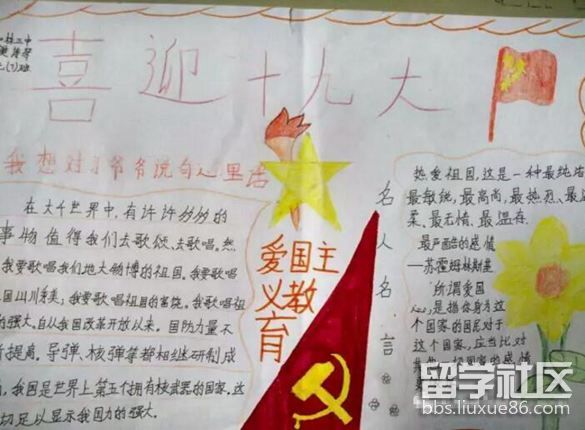 喜迎十九大
我想对习爷爷说句心里话
在大千世界中，有许许多多的
事物值得我们去歌颂、去歌唱。然
我要歌唱我们地大物博的祖国。我要歌唱
国山川秀美，我要歌唱祖国的富饶。我歌唱祖
的强大。自从我国改革开放以来。国防力量不
提高，导弹、核弹等都相继研制成
我国是世界上第五个拥有核武器的国家。这
切足以显示我国力的强大。
爱国主
义教
育
名人名言
热爱祖国，这是一种最纯洁
最敏锐，最高尚，最热烈、最温
柔、最无情、最温存
最严酷的感情
——苏霍姆林斯基
所谓爱国
心，是指你身为这
个国家的国民对于
这个国家，应当比对
一切国家的感情
留学社区
bbs.liuxue86.com